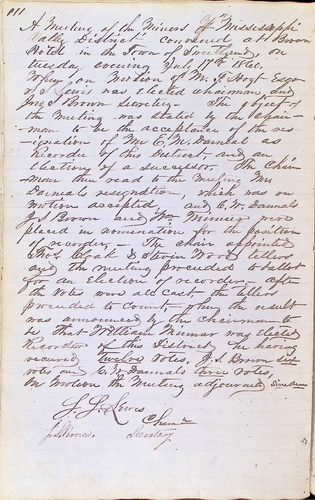 111
A Meeting of the Miners of "Mississippi
Vally District" convened at the Brown
Hotel in the Town of Sweetland, on
tuesday evening Jul. 17th 1860.
When on Motion of Mr Hoyt Esqr
Lewis was elected chairman, and
Jas. S Brown Secretary — The object of
the Meeting was stated by the Chair-
man to be the acceptance of the res-
ignation of Mr E. W. Dannals as
Recorder of this District and an
Election of a successor — The Chair-
man then read to the meeting Mr
Dannals resignation, which was on
motion accepted, and E. W. Dannals
J. S Brown and Wm. were
placed in nomination for the position
of recorder — The chair appointed
Thos. Cloak & Wood tellers
and the meeting proceeded to ballot
for an Election of recorder — after
the Votes were all cast the tellers
proceeded to Count, when the result
was announced by the chairman to
be that William was elected
Recorder of this District, he having
received twelve votes, J. S. Brown
votes and E W Dannals three votes,
On Motion the Meeting adjourned
Lewis
Chairm
J. S. Brown, Secretary